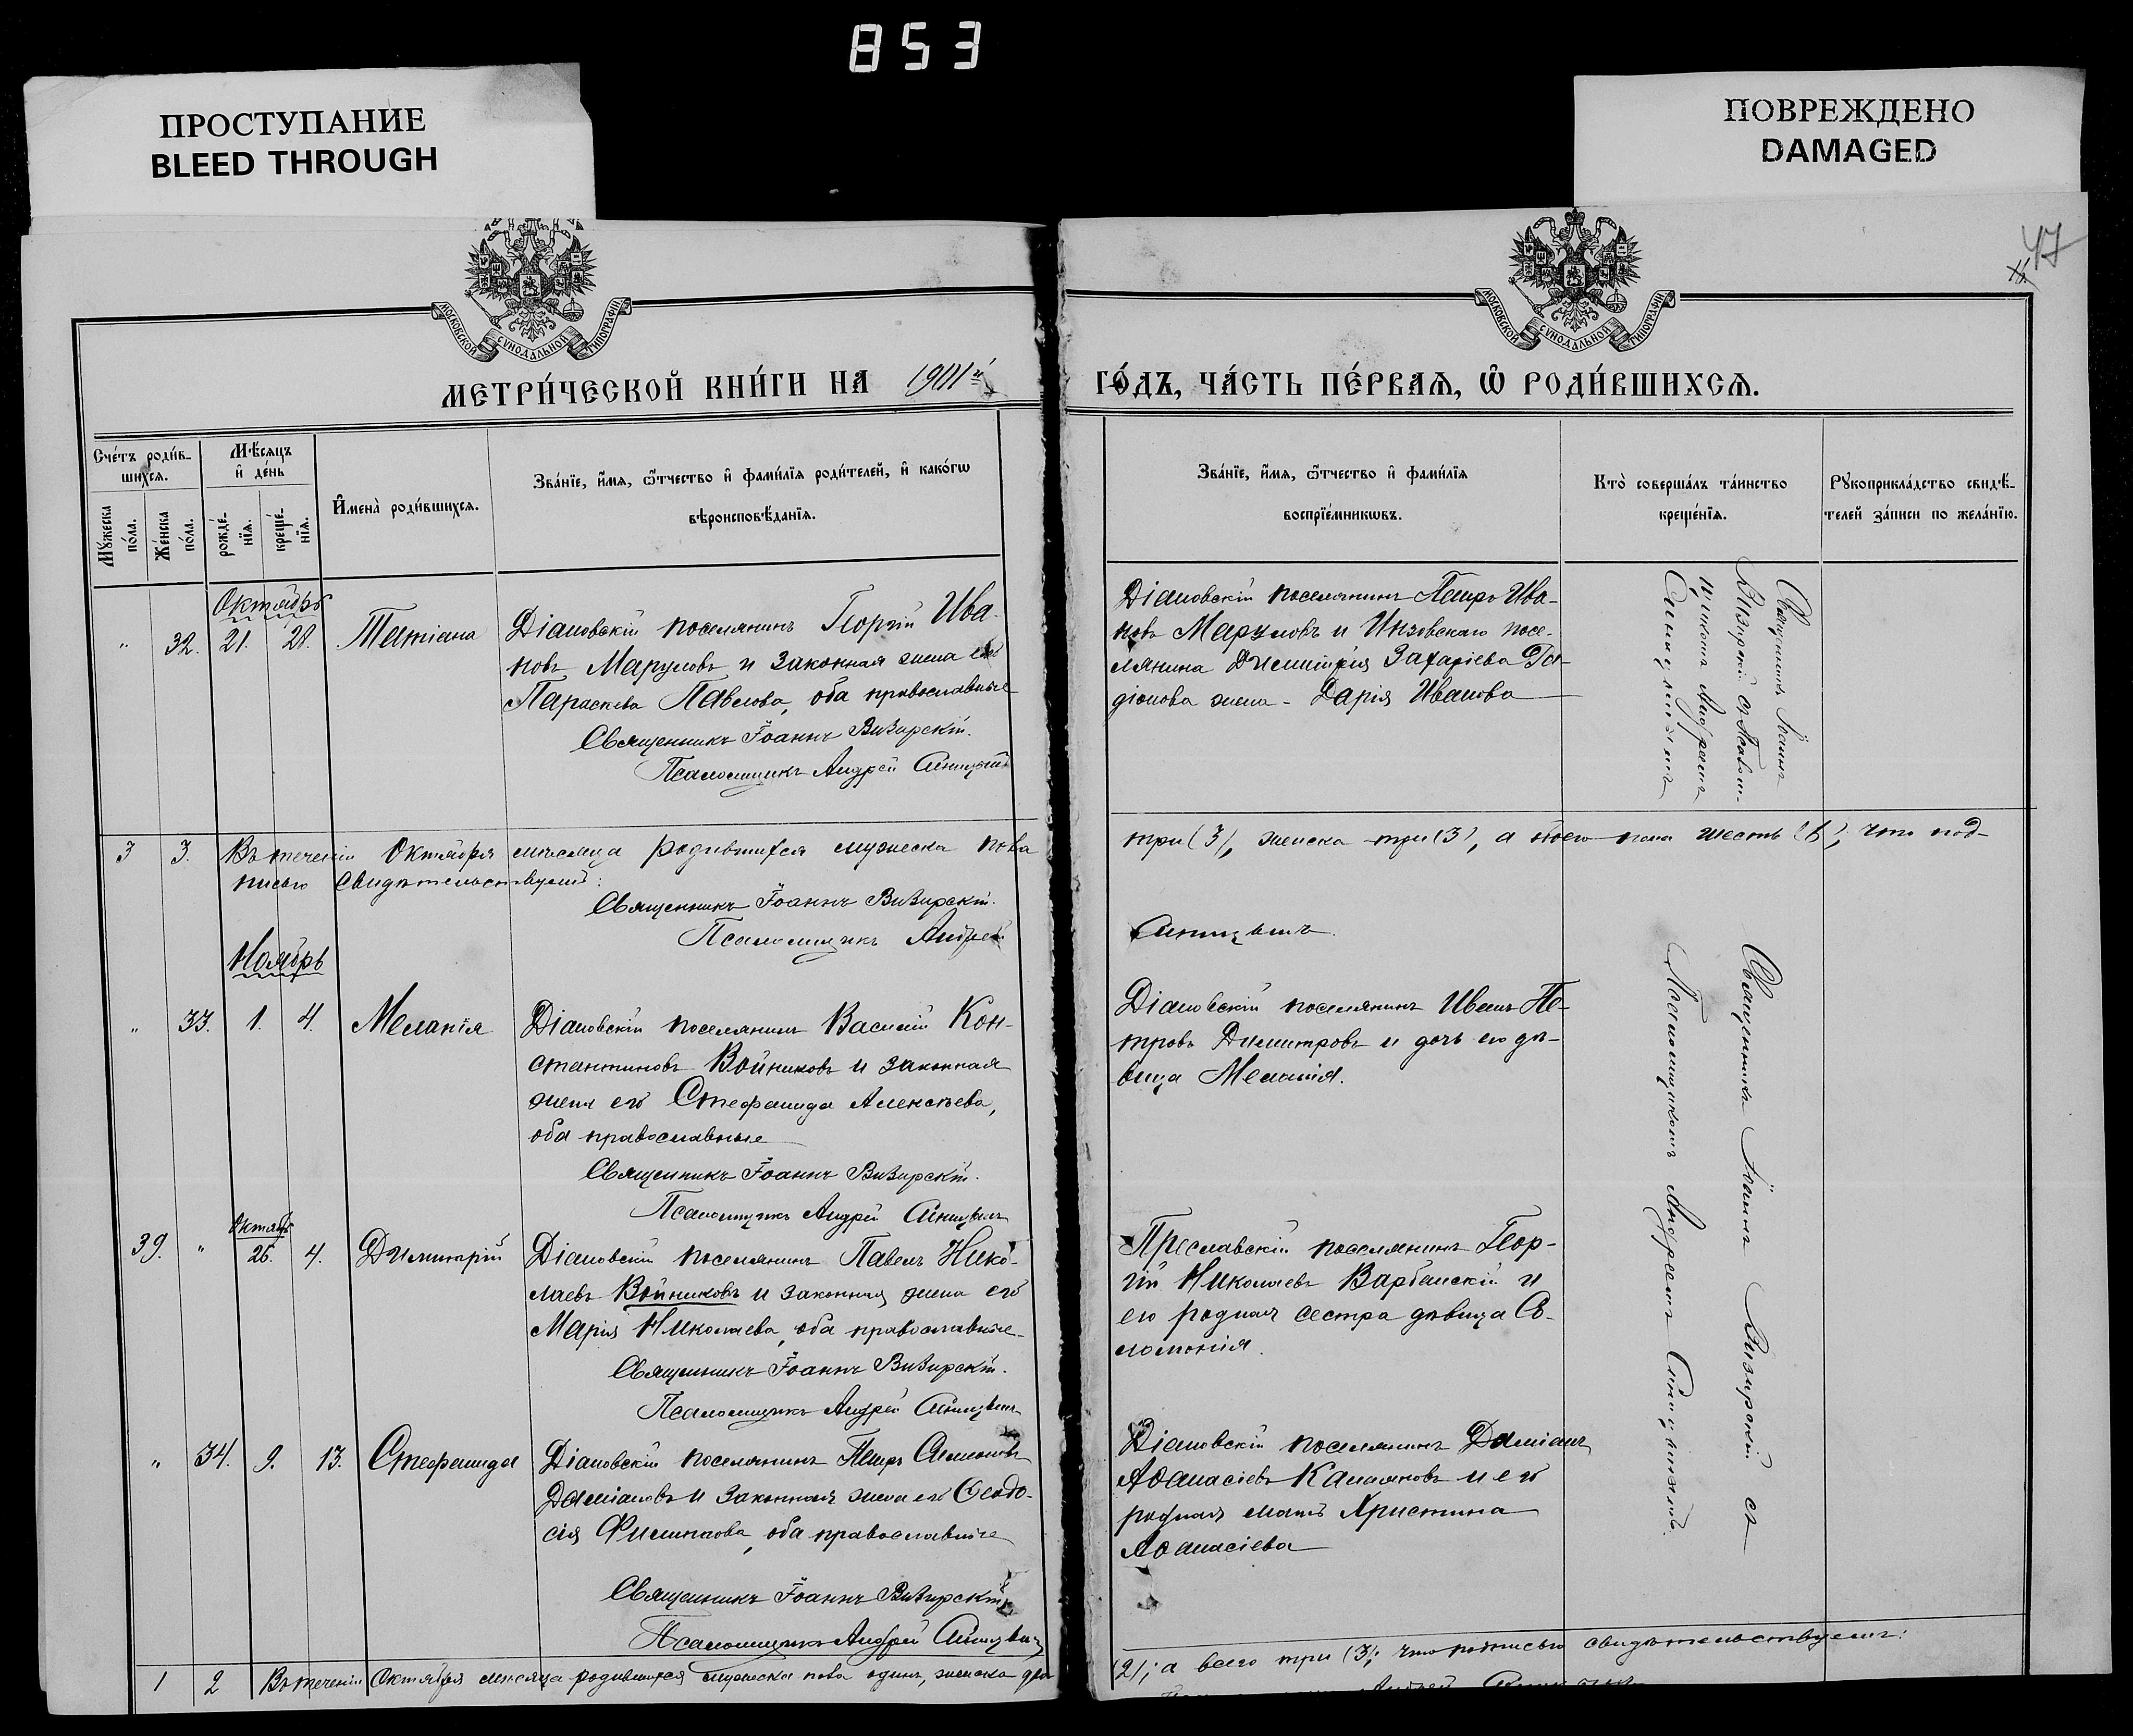 853
ПРОСТУПАНИЕ
BLEED THROUGH
ПОВРЕЖДЕНО
DAMAGED
47
МОСКОВСКОЙ СѴНОДАЛЬНОЙ ТИПОГРАФІИ
МОСКОВСКОЙ СѴНОДАЛЬНОЙ ТИПОГРАФІИ
МЕТРИ́ЧЕСКОЙ КНИ́ГИ НА 1911й
ГО́ДЪ, ЧА́СТЬ ПЕ́РВАѦ, Ѽ РОДИ́ВШИХСѦ.
Сче́тъ роди́в-
шихсѧ.
Мѣ́сѧцъ
и҆ де́нь
Мꙋ́жеска
по́ла.
Же́нска
по́ла.
рожде́-
нїѧ.
креще́-
нїѧ.
И҆мена̀ роди́вшихсѧ.
Зва́нїе, и҆́мѧ, ѻ҆́тчество и҆ фами́лїѧ роди́телей, и҆ како́гѡ
вѣроисповѣ́данїѧ.
Зва́нїе, и҆́мѧ, ѻ҆́тчество и҆ фами́лїѧ
воспрїе́мникѡвъ.
Кто̀ соверша́лъ та́инство
креще́нїѧ.
Рꙋкоприкла́дство свидѣ́-
телей за́писи по жела́нїю.
Октябрь
" 32. 21. 28. Татіана
Діановскій поселянинъ Георгій Ива-
новъ Маруловъ и законная жена его
Параскева Павлова, оба православные
Священникъ Іоаннъ Визирскій.
Псаломщикъ Андрей
Діановскій поселянинъ Петръ Ива-
новъ Маруловъ и Инзовскаго посе-
лянина Димитрія Захаріева Ра-
діонова жена - Дарія Иванова
Священникъ Іоаннъ
Визирскій съ Псалом-
щикомъ Андреемъ
3 3. Въ теченіи Октября мѣсяца родившихся мужеска пола
три (3), женска три (3), а обоего пола шесть (6), что под-
писью свидѣтельствуемъ:
Священникъ Іоаннъ Визирскій.
Псаломщикъ Андрей
Ноябрь
" 33. 1. 4. Меланія
Діановскій поселянинъ Василій Кон-
стантиновъ Войниковъ и законная
жена его Стефанида Алексѣева,
оба православные
Священникъ Іоаннъ Визирскій.
Псаломщикъ Андрей
Діановскій поселянинъ Иванъ Пе-
тровъ Димитровъ и дочь его дѣ-
вица Меланія.
Октябрь
39. " 26. 4. Димитрій
Діановскій поселянинъ Павелъ Нико-
лаевъ Войниковъ и законная жена его
Марія Николаева, оба православные
Священникъ Іоаннъ Визирскій.
Псаломщикъ Андрей
Преславскій поселянинъ Геор-
гій Николаевъ Варбанскій и
его родная сестра дѣвица Со-
ломонія.
" 34. 9. 13. Стефанида
Діановскій поселянинъ Петръ Симеоновъ
Даміановъ и законная жена его Ѳеодо-
сія Филиппова, оба православные
Священникъ Іоаннъ Визирскій
Псаломщикъ Андрей
Діановскій поселянинъ Даміанъ
Аѳанасіевъ Калаяновъ и его
родная мать Христина
Аѳанасіева
Священникъ Іоаннъ Визирскій съ
Псаломщикомъ Андреемъ
1 2 Въ теченіи Октября мѣсяца родившихся мужеска пола одинъ, женска два
(2); а всего три (3); что подписью свидѣтельствуемъ: